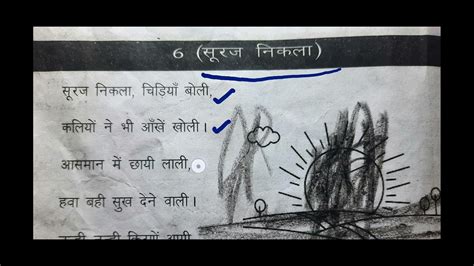 6 (सूरज निकला)
सूरज निकला, चिड़ियाँ बोली,
कलियों ने भी आँखें खोली।
आसमान में छायी लाली,
हवा बही सुख देने वाली।